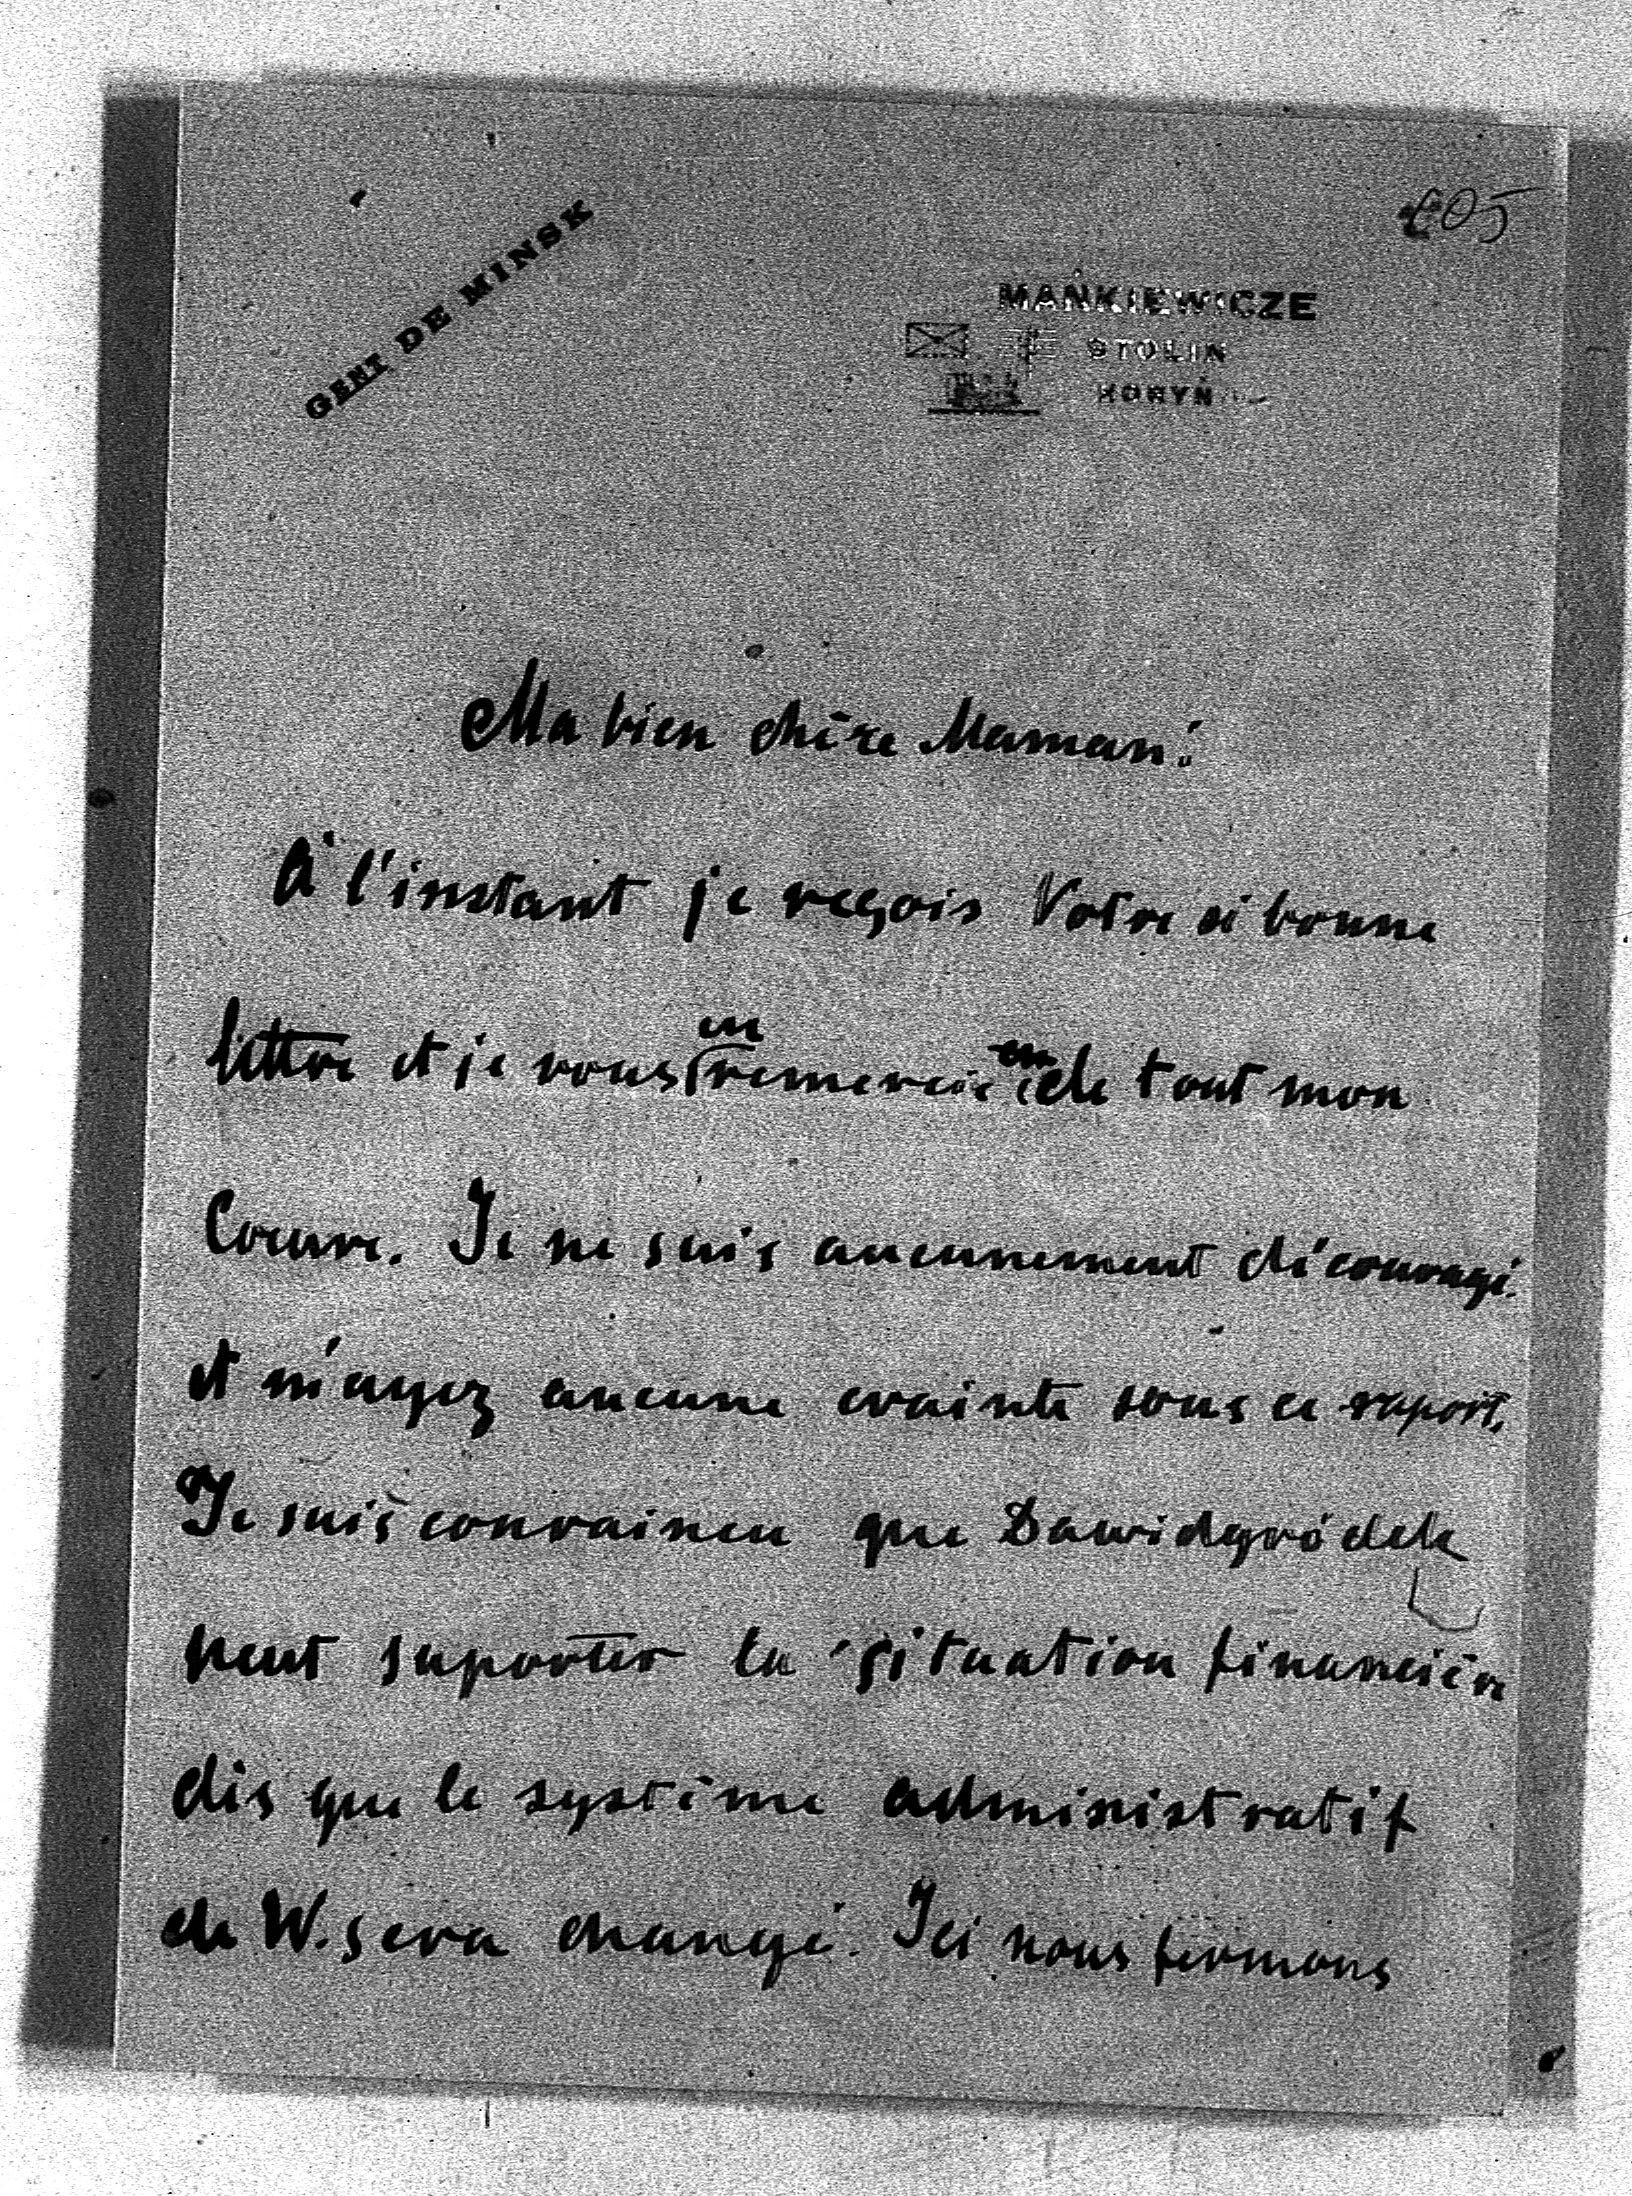 GENT DE MINSK
105
MAŃKIEWICZE
STOLIN
HORYŃ
Ma bien chère Maman!
À l'instant je reçois Votre si bonne
lettre et je vous en remercie en de tout mon
Coeure. Je ne suis aucunement découragé.
et n'ayez aucune crainte sous ce raport.
Je suis convaincu que Dawidgródek
peut suporter la situation financière
dis que le système administratif
de W. sera changé. Ici nous fermons